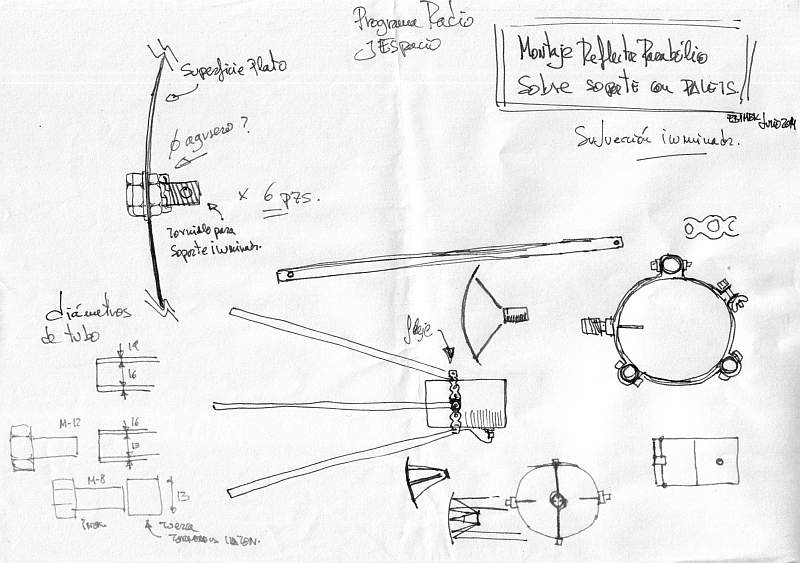 Programa Radio
y Espacio
Montaje Reflector Parabólico
Sobre soporte con PALETS.
Julio 2014
Sujección iluminador.
Superficie Plato
ø agujero?
x 6 pzs.
Tornillo para
Soporte iluminador.
diámetros
de tubo
19
16
M-12
16
13
M-8
13
Inox
Tuerca
fleje